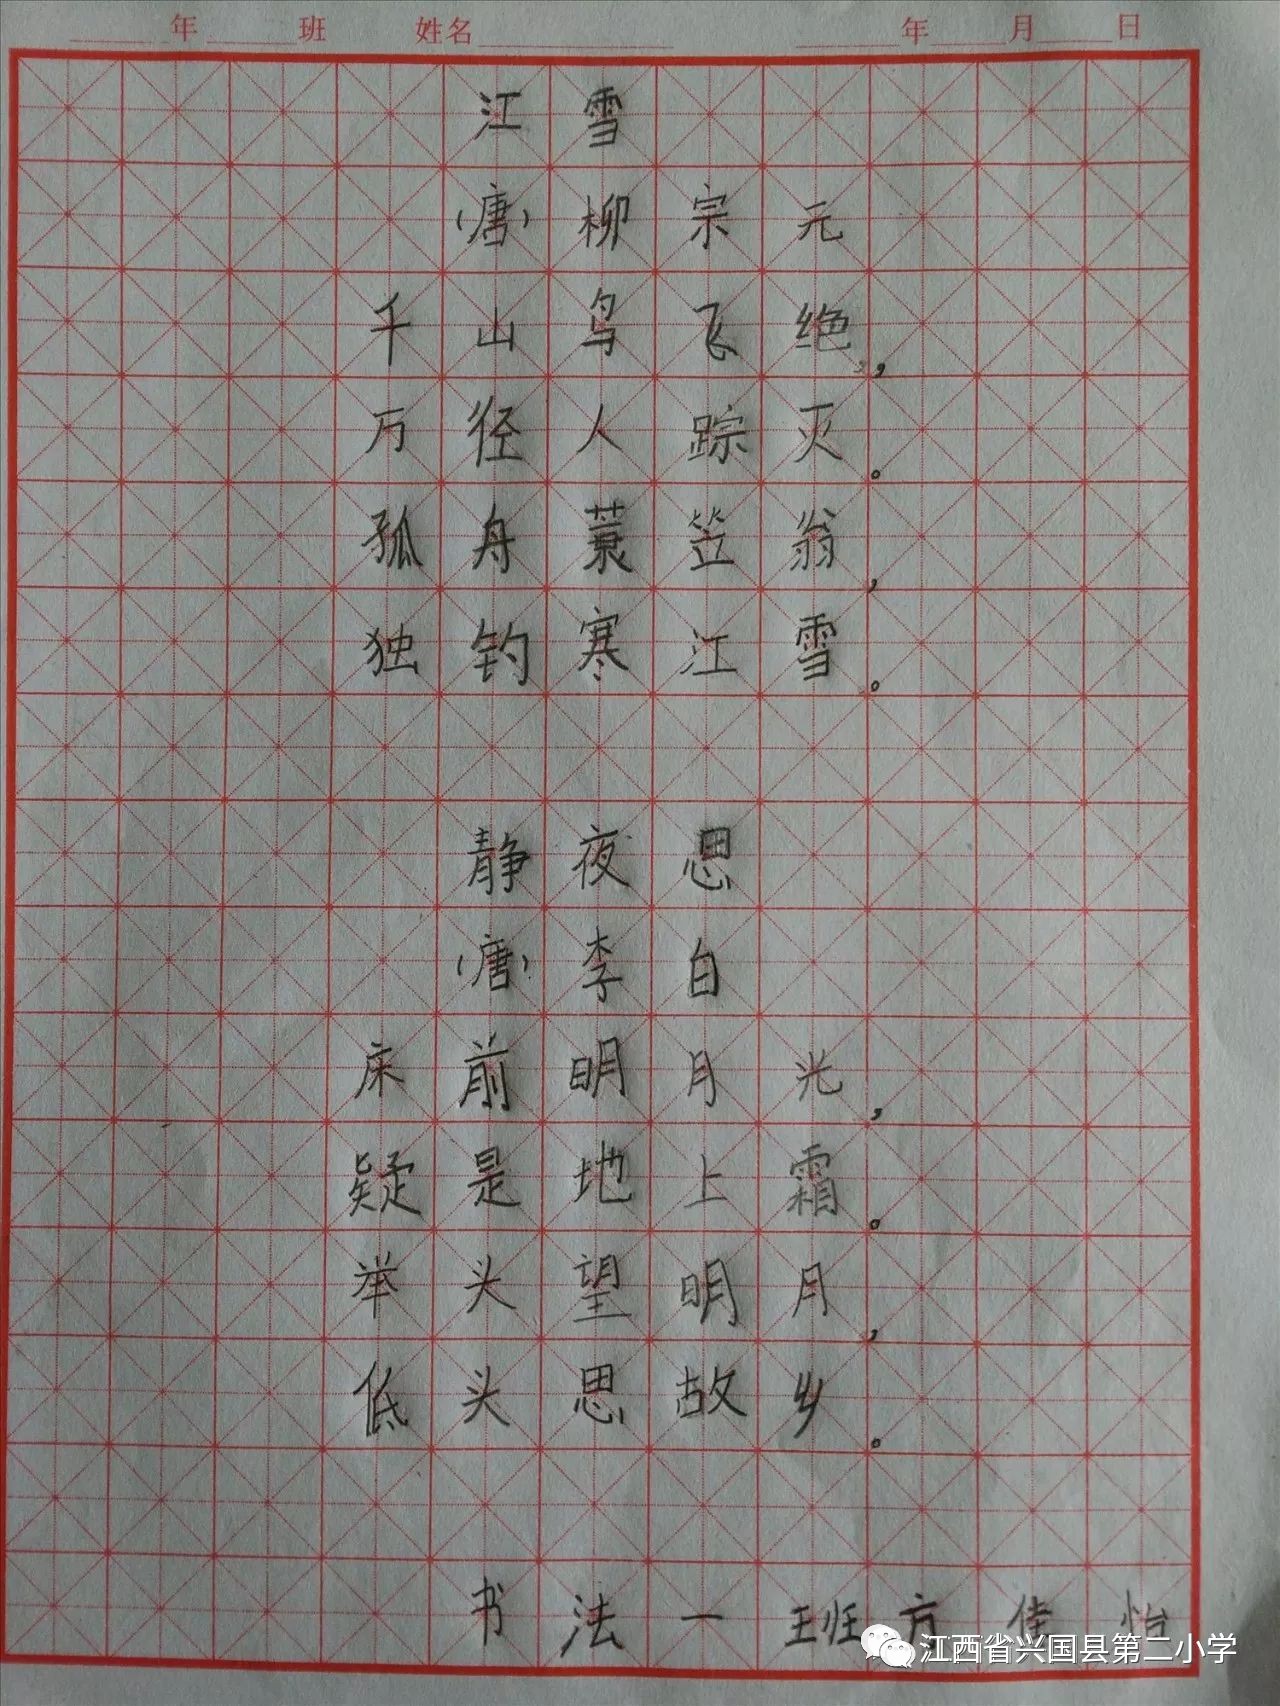 年 班 姓名 年 月 日
江雪
(唐)柳宗元
千山鸟飞绝,
万径人踪灭。
孤舟蓑笠翁,
独钓寒江雪。
静夜思
(唐)李白
床前明月光,
疑是地上霜。
举头望明月,
低头思故乡。
书法一班方佳怡
江西省兴国县第二小学